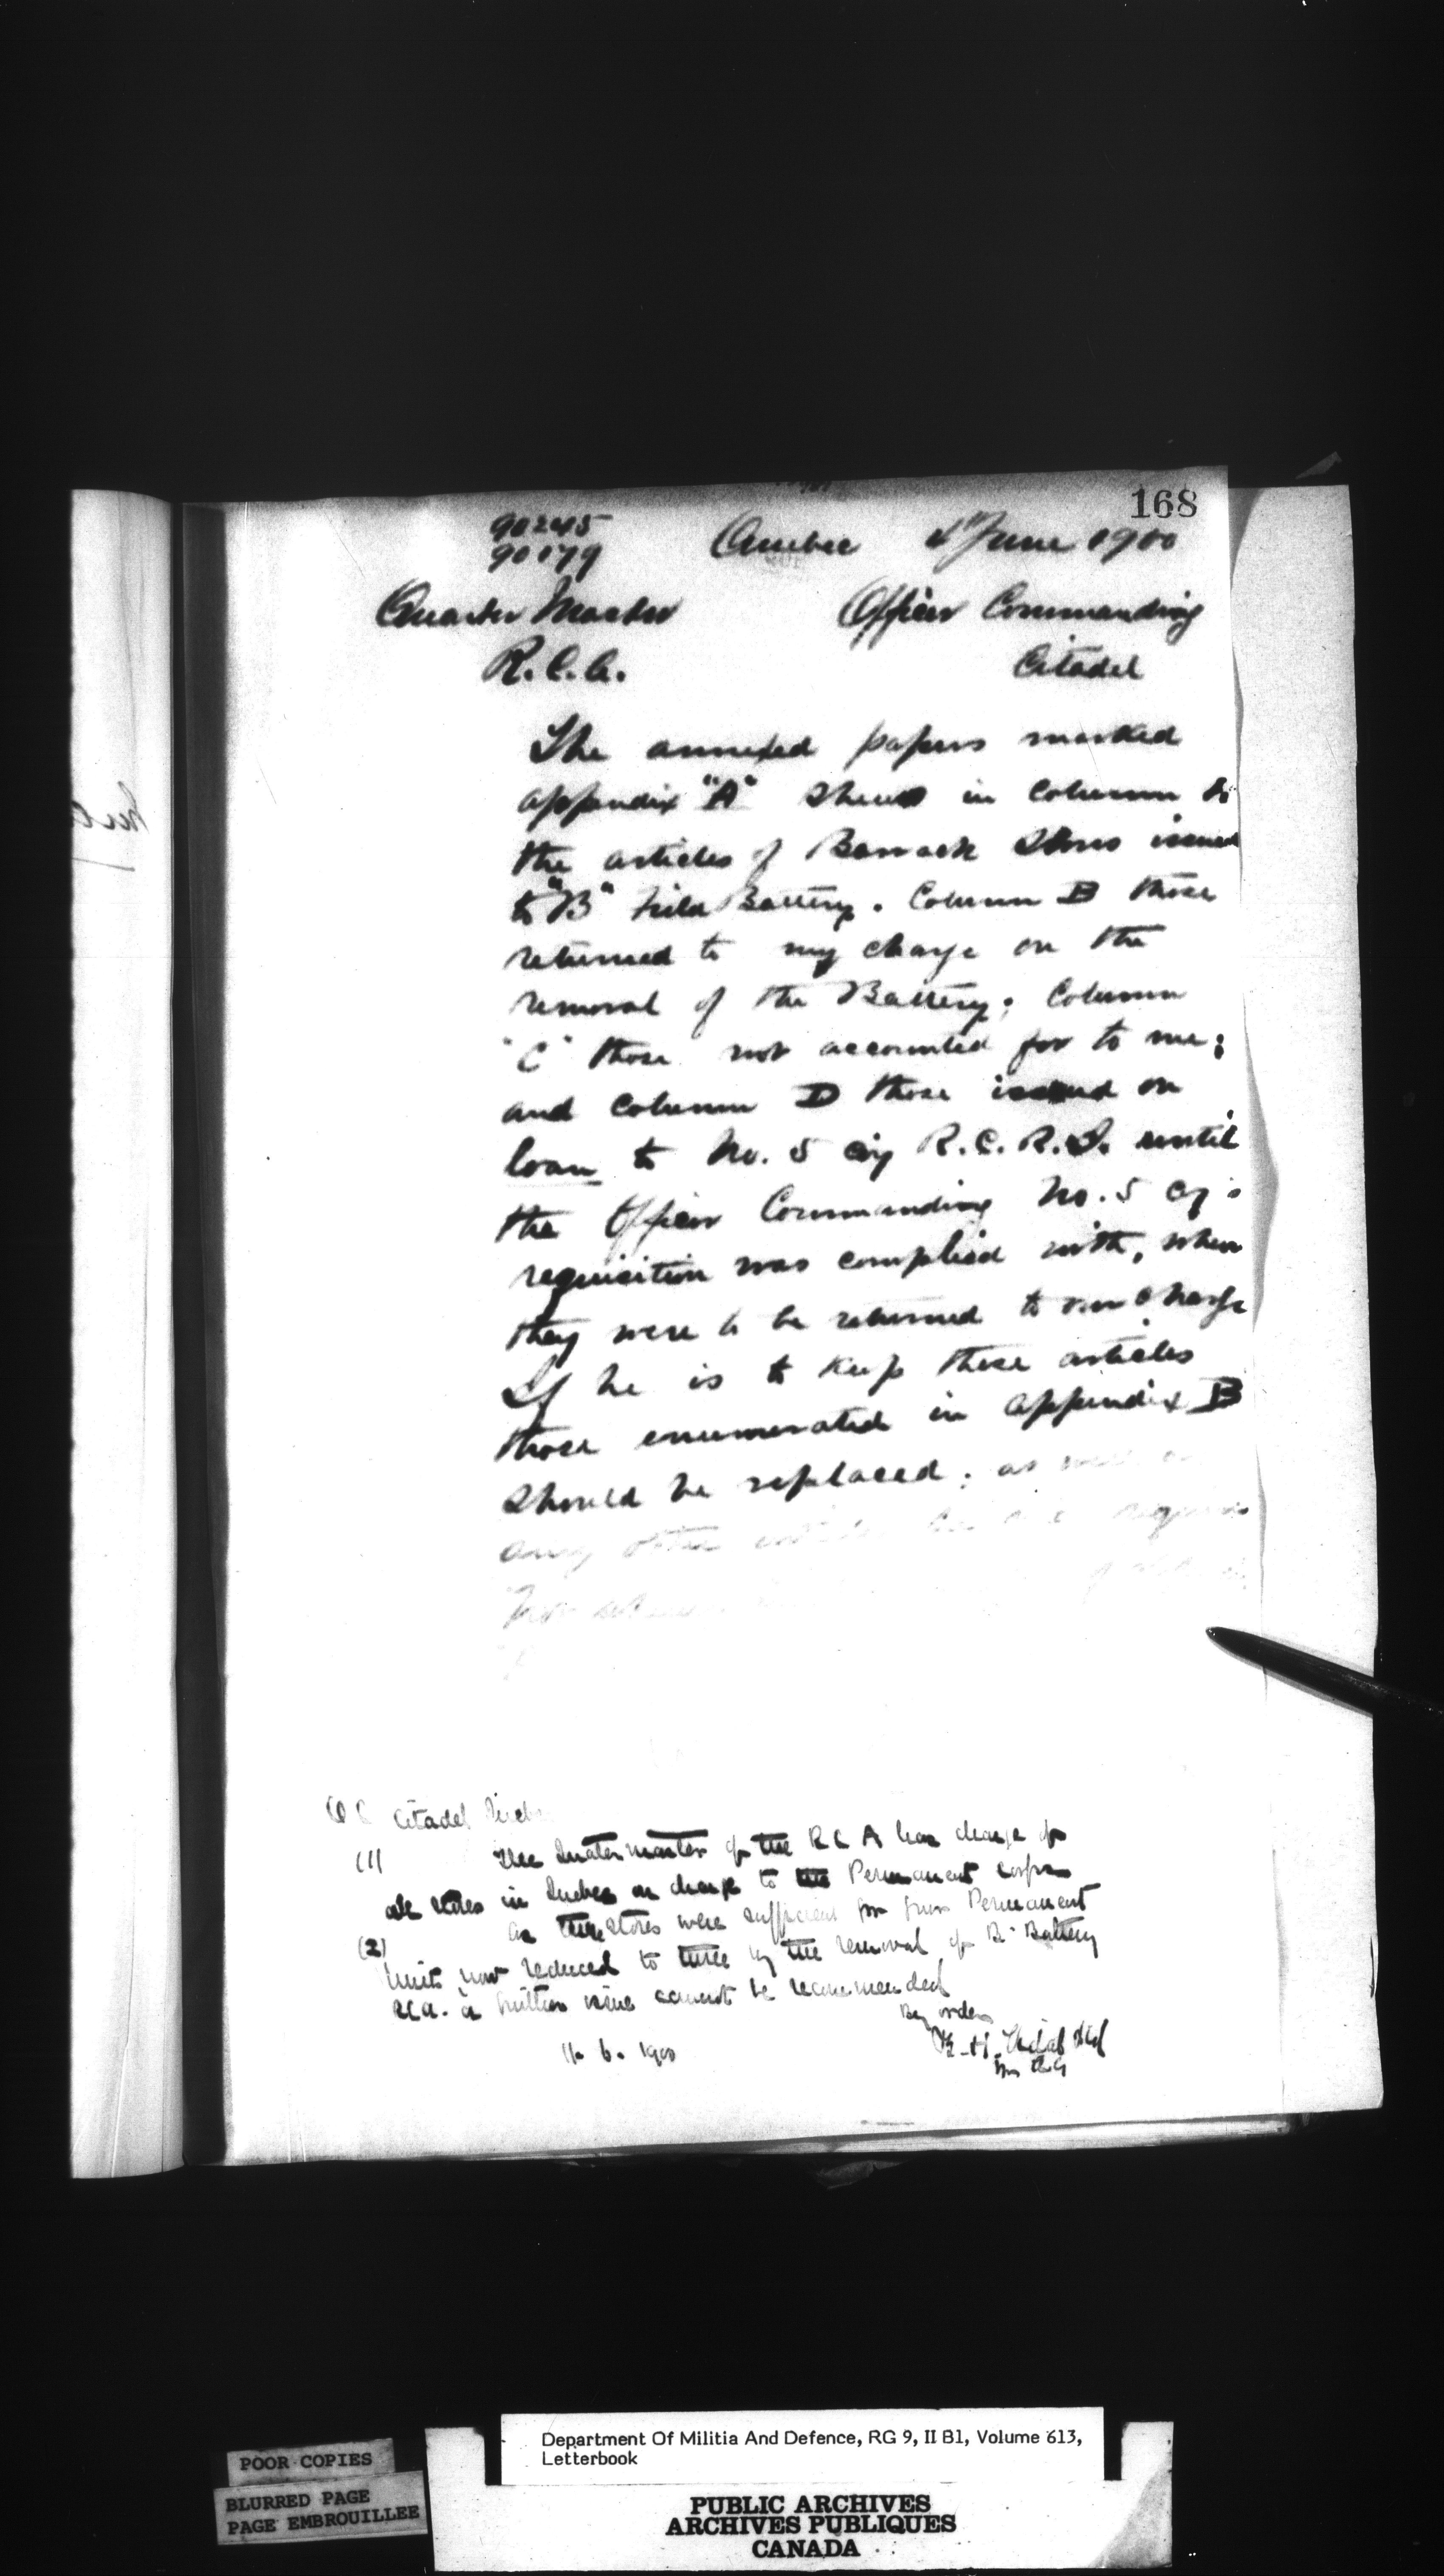 168
90245
90179
Quebec 4th June 1900
Quarter Master
Officer Commanding
R.C.A.
Citadel
The annexed papers marked
appendix "A" shews in Column
the articles of Barrack Stores issued
to "B" Field Battery. Column B those
returned to my charge on the
removal of the Battery; Column
"C" those not accounted for to me;
and Column D those issued on
loan to No. 5 Coy R.C.R.I. until
the Officer Commanding No. 5 Coy's
requisition was complied with, when
they were to be returned to my charge
If he is to keep these articles
those enumerated in appendix B
should be replaced; as
any other
Citadel
(1) The Quatermaster of the RCA has charge of
all stores in Quebec on charge to the Permanent corps
(2) As these stores were sufficient for four Permanent
units now reduced to three by the removal of B Battery
a further issue cannot be recommended
By order
11. 6. 1900
POOR COPIES
BLURRED PAGE
PAGE EMBROUILLEE
Department Of Militia And Defence, RG 9, II B1, Volume 613,
Letterbook
PUBLIC ARCHIVES
ARCHIVES PUBLIQUES
CANADA